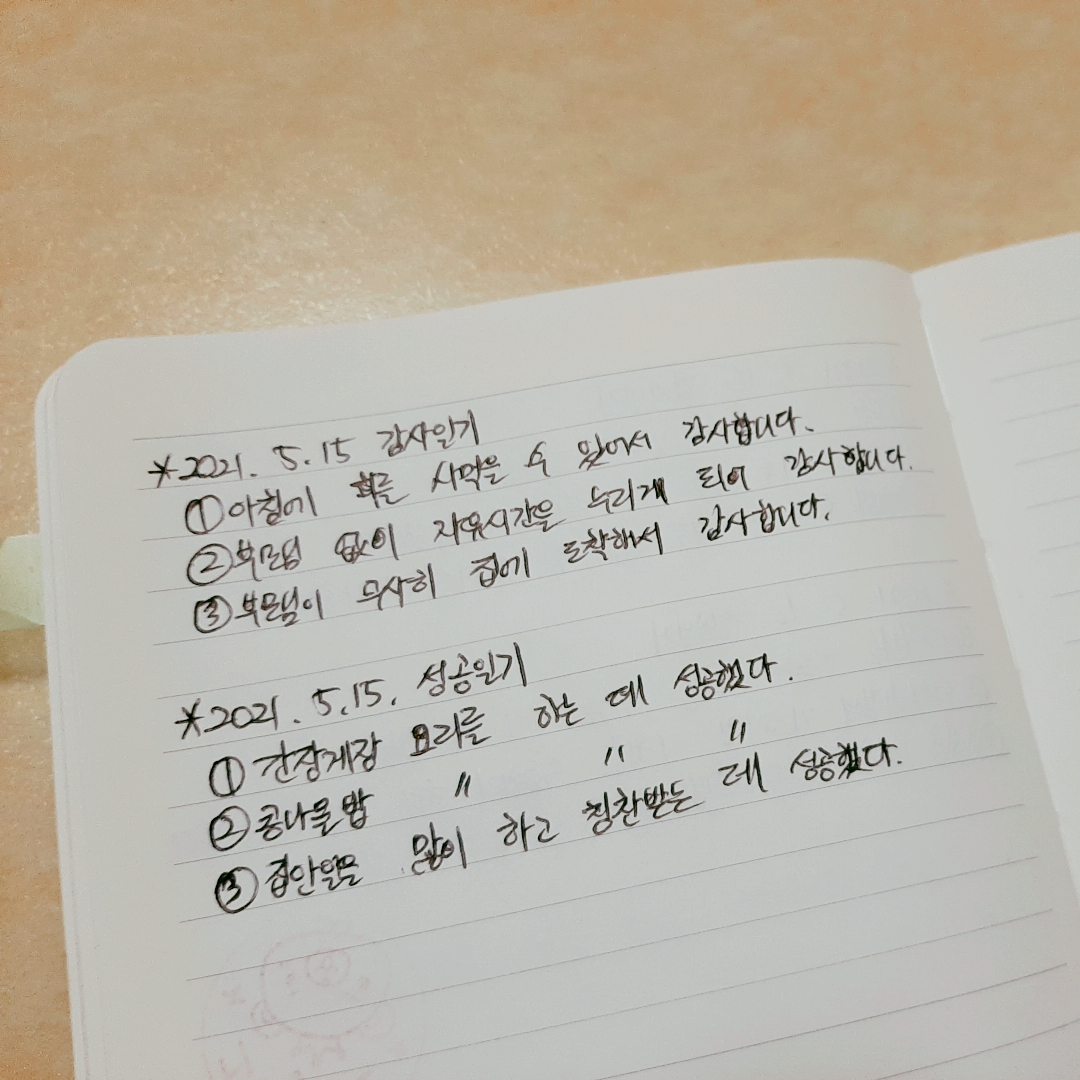 *2021. 5.15 감사일기
①아침에 회를 사먹을 수 있어서 감사합니다.
②부모님 없이 자유시간을 누리게 되어 감사합니다.
③부모님이 무사히 집에 도착해서 감사합니다.
*2021. 5.15. 성공일기
①간장게장 요리를 하는 데 성공했다.
②콩나물밥 〃 〃 〃
③집안일을 많이 하고 칭찬받는 데 성공했다.